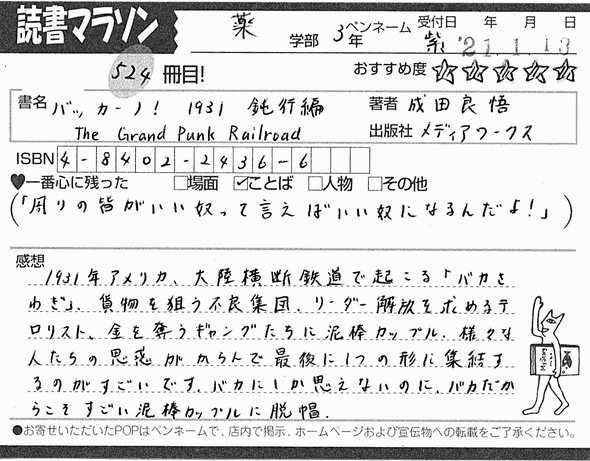 読書マラソン
薬 学部 3年 ペンネーム 紫 受付日 年 月 日
'21.1.13
524 冊目! おすすめ度 ☆☆☆☆☆
書名 バッカーノ! 1931 鈍行編 著者 成田良悟
The Grand Punk Railroad 出版社 メディアワークス
ISBN 4-8402-2436-6
♥一番心に残った □場面 ☑ことば □人物 □その他
(「周りの皆がいい奴って言えばいい奴になるんだよ!」)
感想
1931年アメリカ、大陸横断鉄道で起こる「バカさ
わぎ」、貨物を狙う不良集団、リーダー解放を求めるテ
ロリスト、金を奪うギャングたちに泥棒カップル、様々な
人たちの思惑がからんで最後に1つの形に集結す
るのがすごいです。バカにしか思えないのに、バカだか
らこそすごい泥棒カップルに脱帽.
●お寄せいただいたPOPはペンネームで、店内で掲示、ホームページおよび宣伝物への転載をご了承ください。